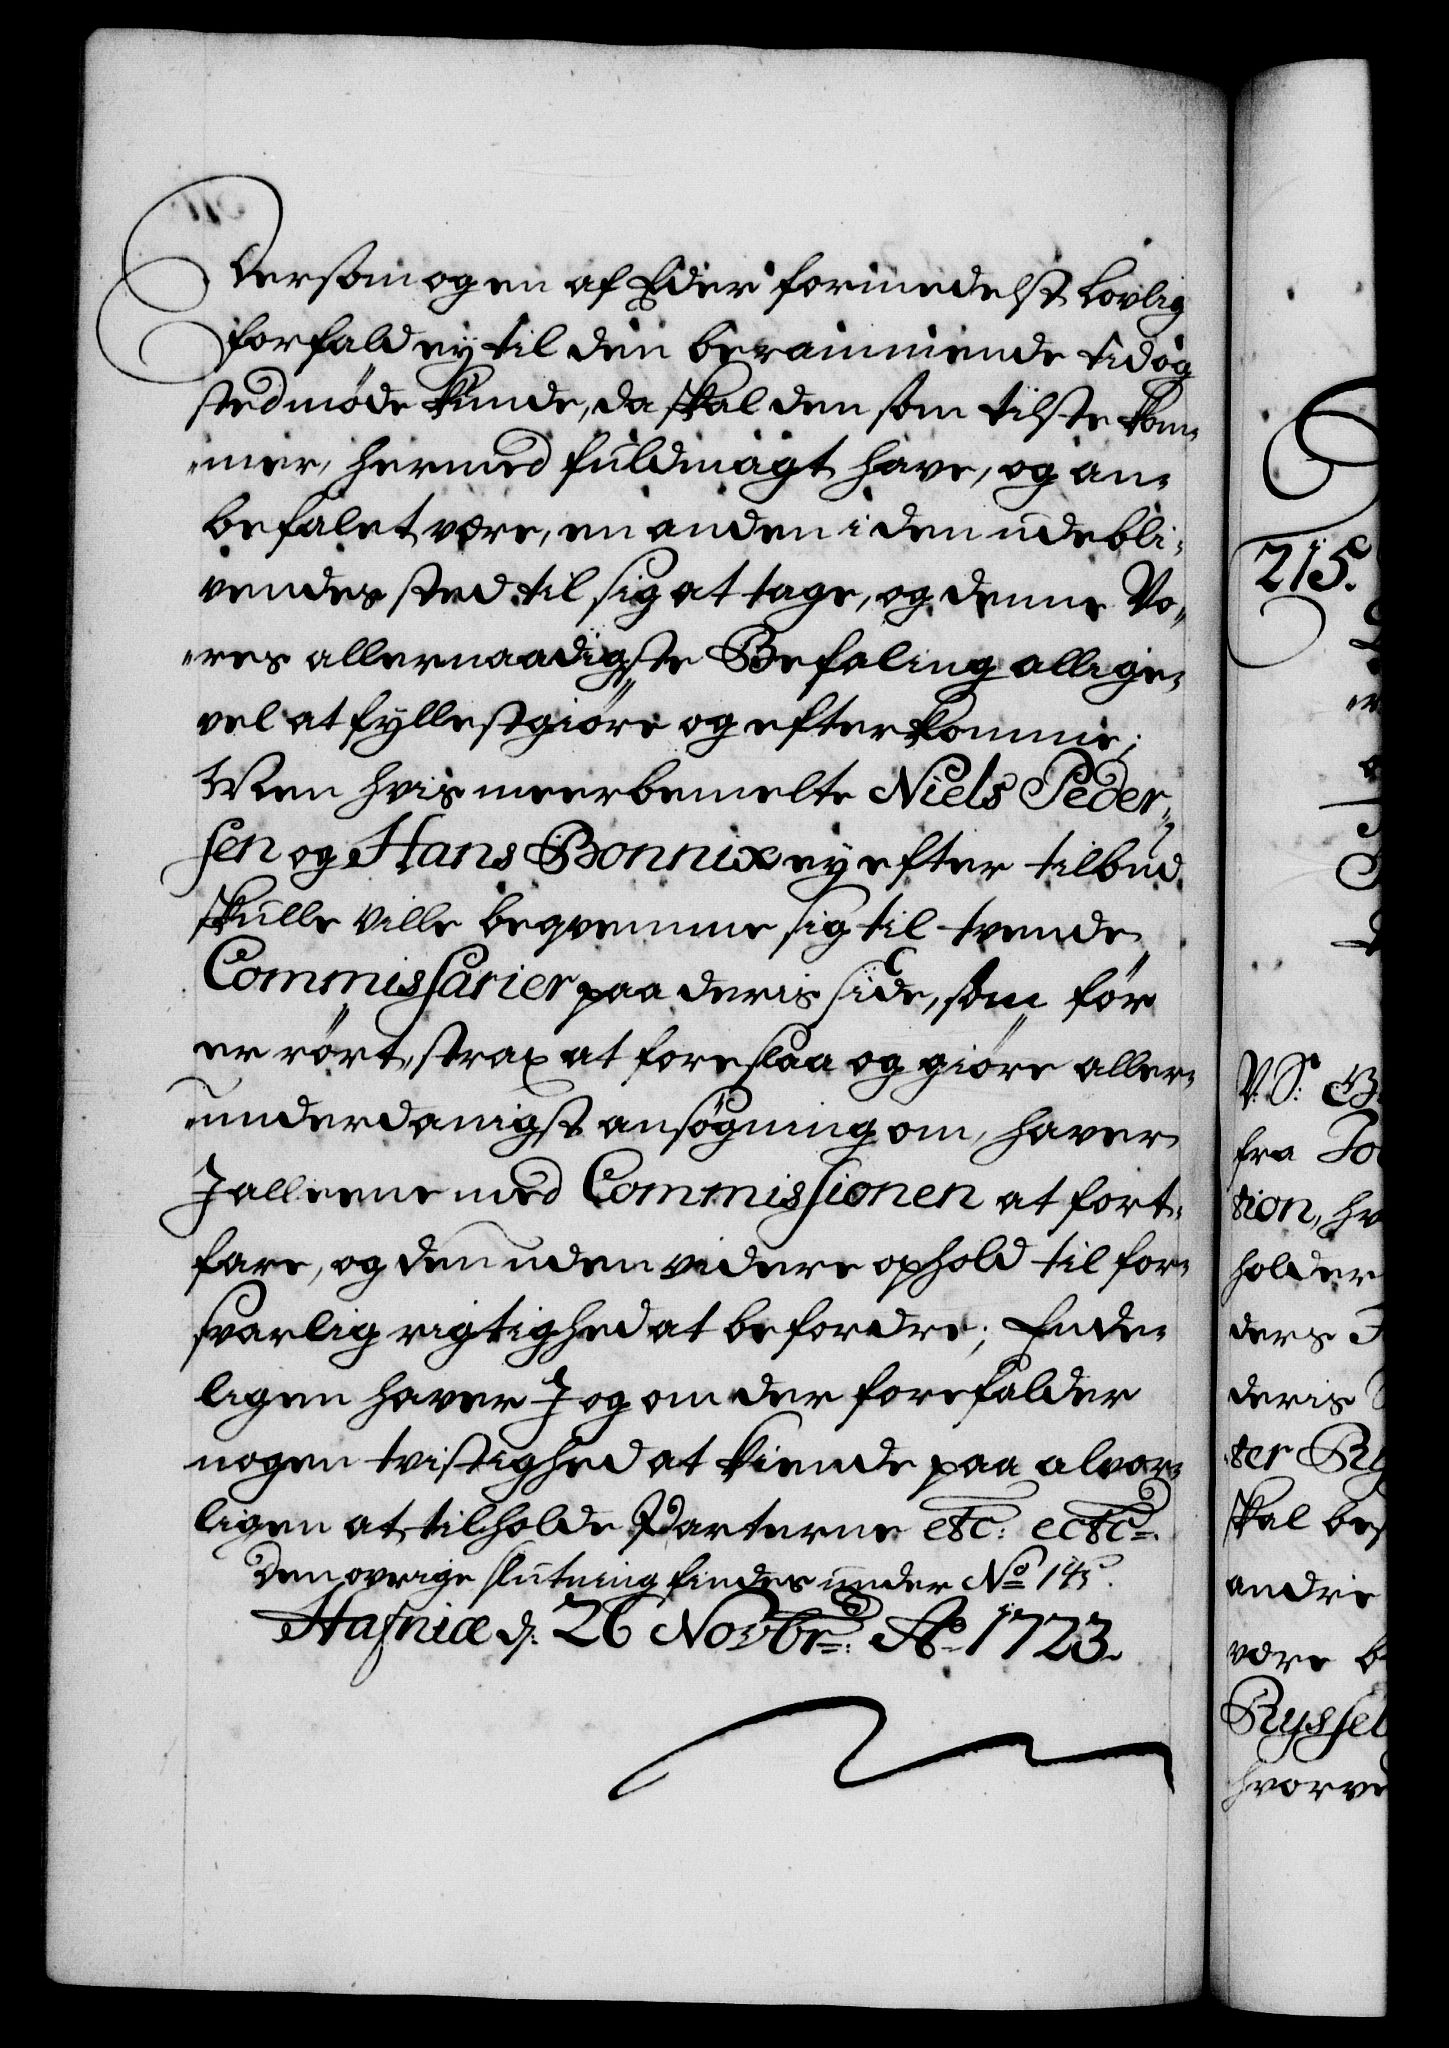 Dersom og en af Eder formedelst lovlig
forfald ey til den berammende tid og
sted møde kunde, da skal den som tilstede kom¬
mer, hermed fuldmagt have, og an¬
befalet være, en anden i den udebli¬
vendes sted til sig at tage, og denne Vo¬
res allernaadigste Befaling allige¬
vel at fyllestgiøre og efterkomme;
Men hvis meerbemelte Niels Peder¬
sen og Hans Bonnix ey efter tilbud
skulle ville beqvemme sig til tvende
Commissarier paa deris side, som før
er rørt, strax at foreslaa og giøre aller¬
underdanigst ansøgning om, haver
I alleene med Commissionen at fort¬
fare, og den uden videre ophold til for¬
svarlig rigtighed at befordre; Ende¬
ligen haver I og om der forefalder
nogen tvistighed at kiende paa alvor¬
ligen at tilholde Parterne etc: ectc.
Den øvrige slutning findes under No 145.
Hafniæ d: 26 Novbr: Ao 1723.
215.
V. S. G
fra
tion, hv
holder
ders
deris
ter Ry
skal bes
andre
være b
Ryssel
hvorve